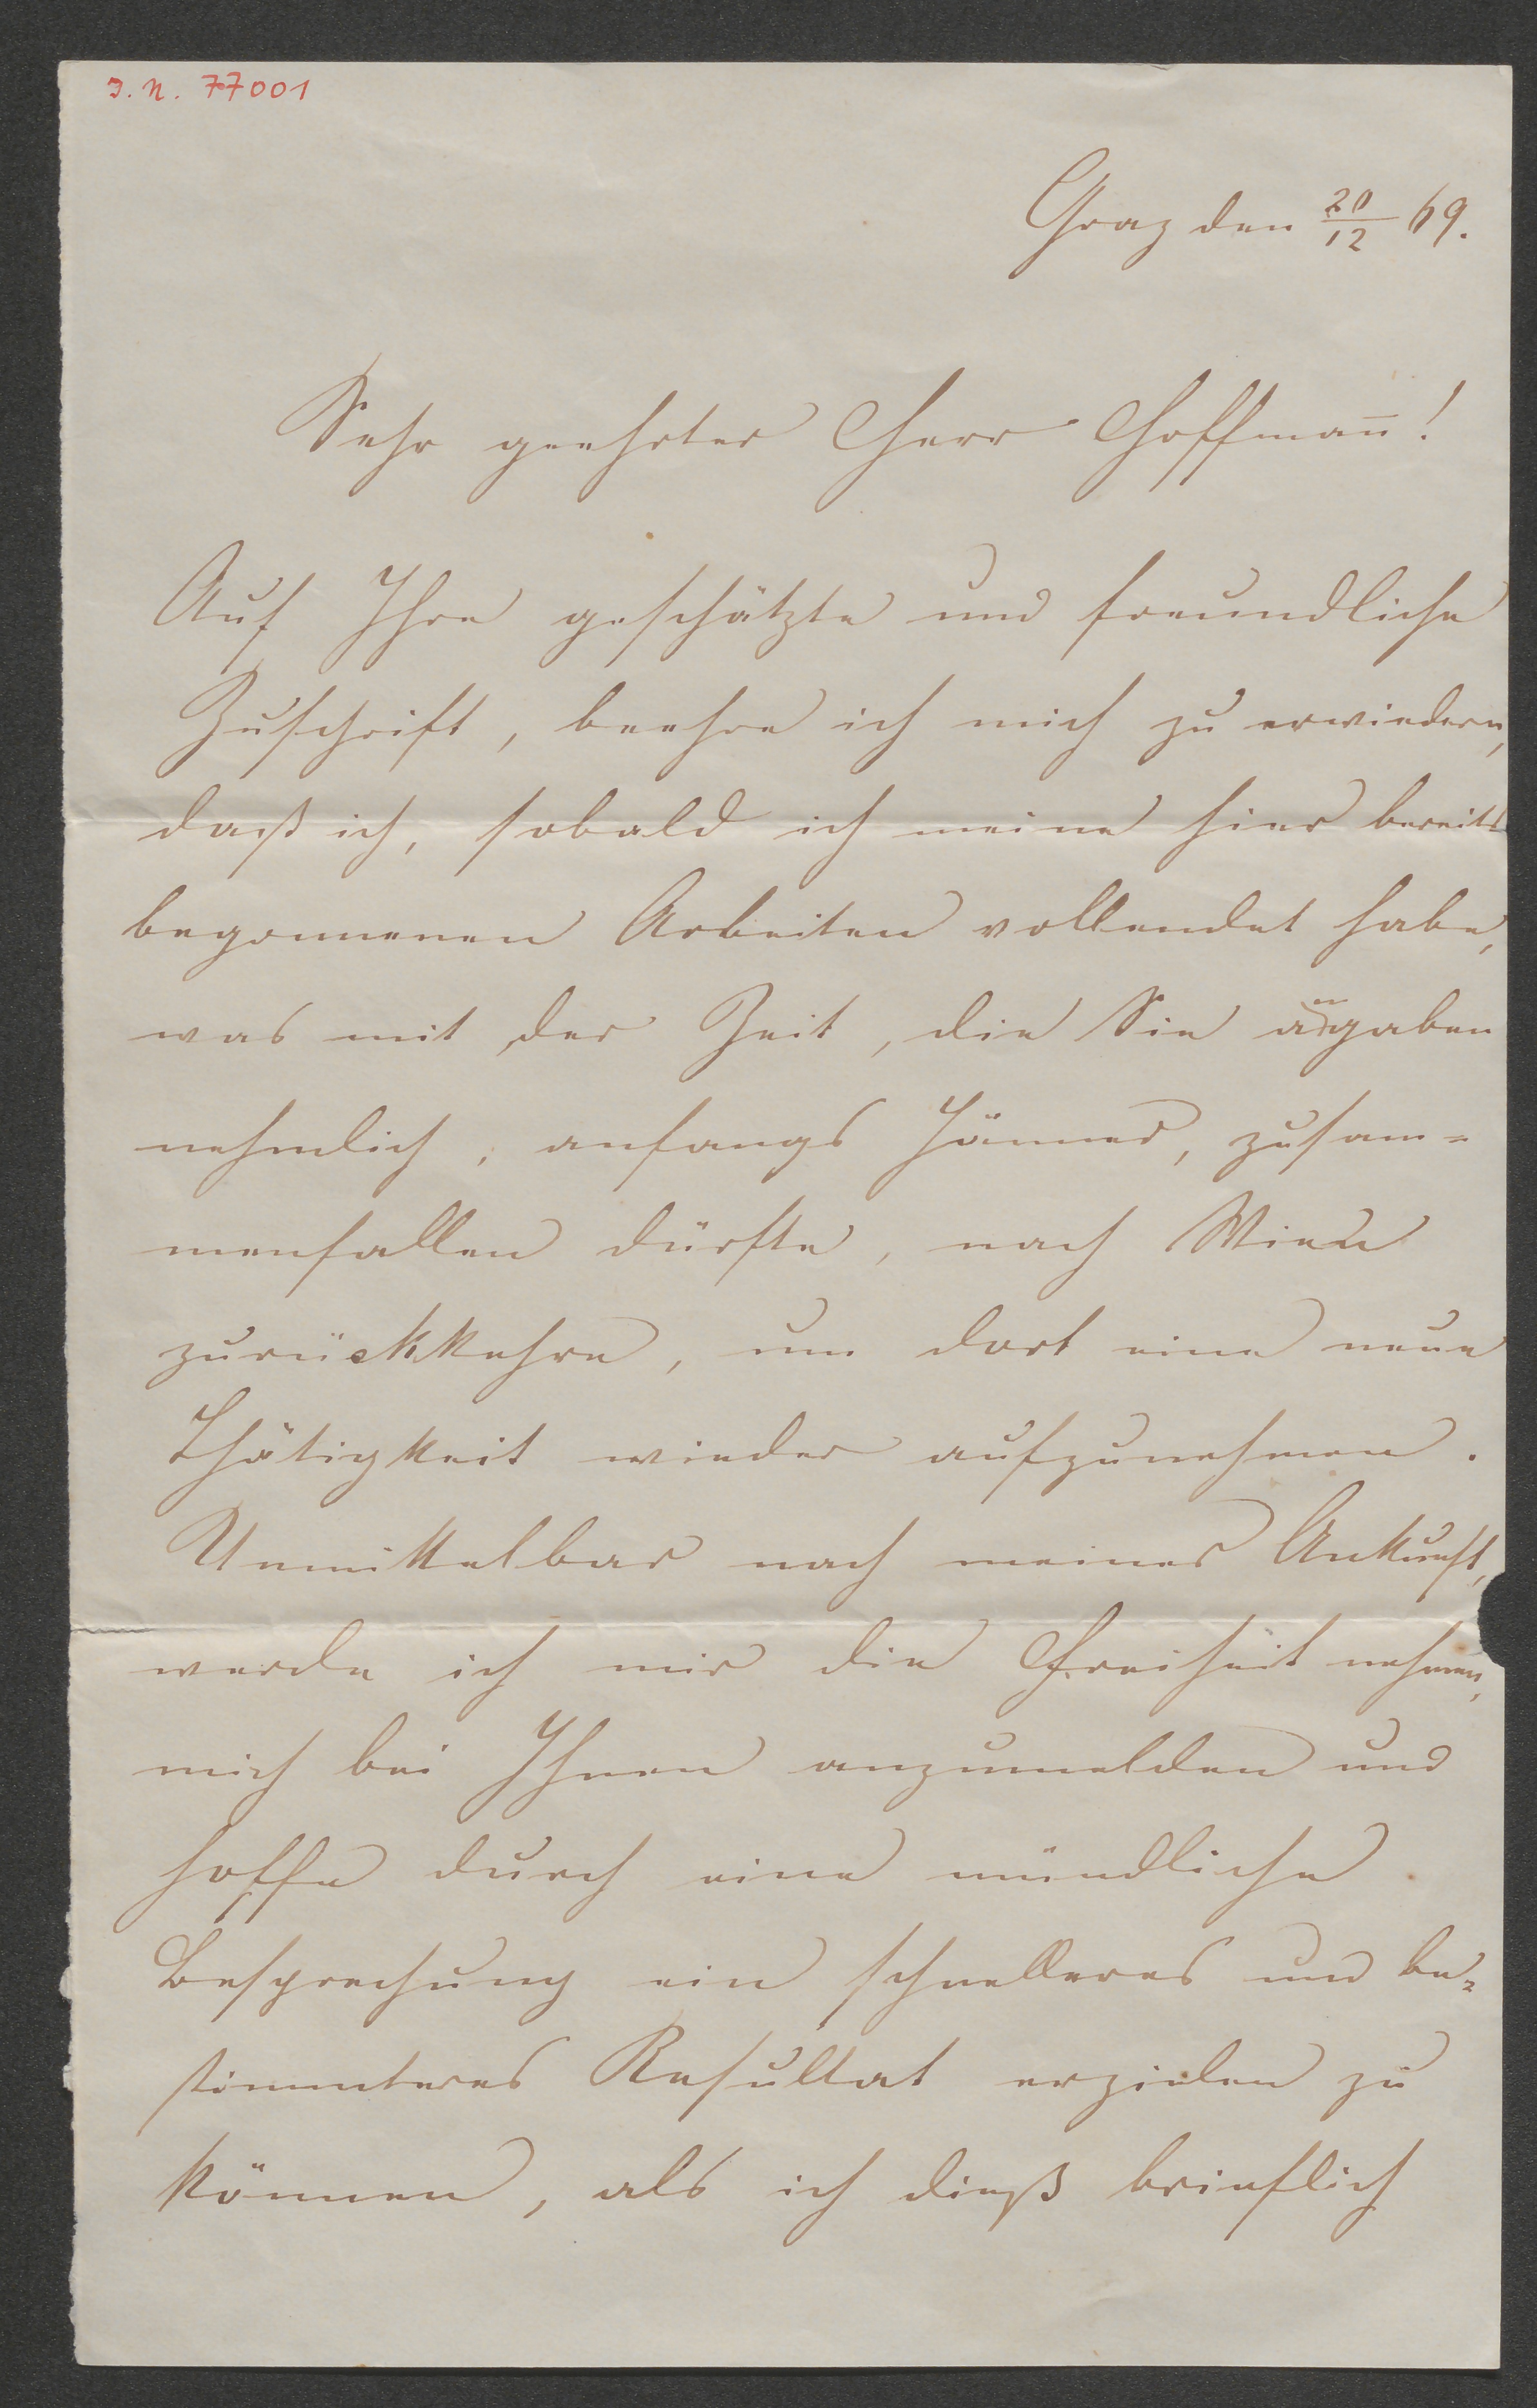 J. N. 77001
Graz den 20/12 69.
Sehr geehrter Herr Hoffmañ!
Auf Ihre geschätzte und freundliche
Zuschrift, beehre ich mich zu erwiedern,
daß ich, sobald ich meine hier bereits
begonnenen Arbeiten vollendet habe,
was mit der Zeit, die Sie angaben
nehmlich, anfangs Jänner, zusam=
menfallen dürfte, nach Wien
zurückkehre, um dort eine neue
Thätigkeit wieder aufzunehmen.
Unmittelbar nach meiner Ankunft,
werde ich mir die Freiheit nehmen,
mich bei Ihnen anzumelden und
hoffe durch eine mündliche
Besprechung ein schnelleres und be=
stimmteres Resultat erzielen zu
können, als ich dieß brieflich